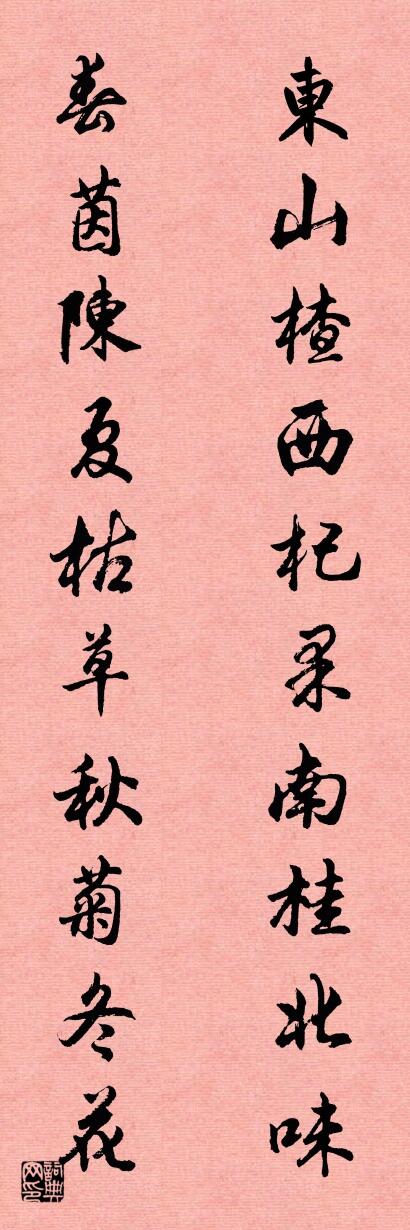 東山楂西杞果南桂北味
春茵陳夏枯草秋菊冬花
詞典網印